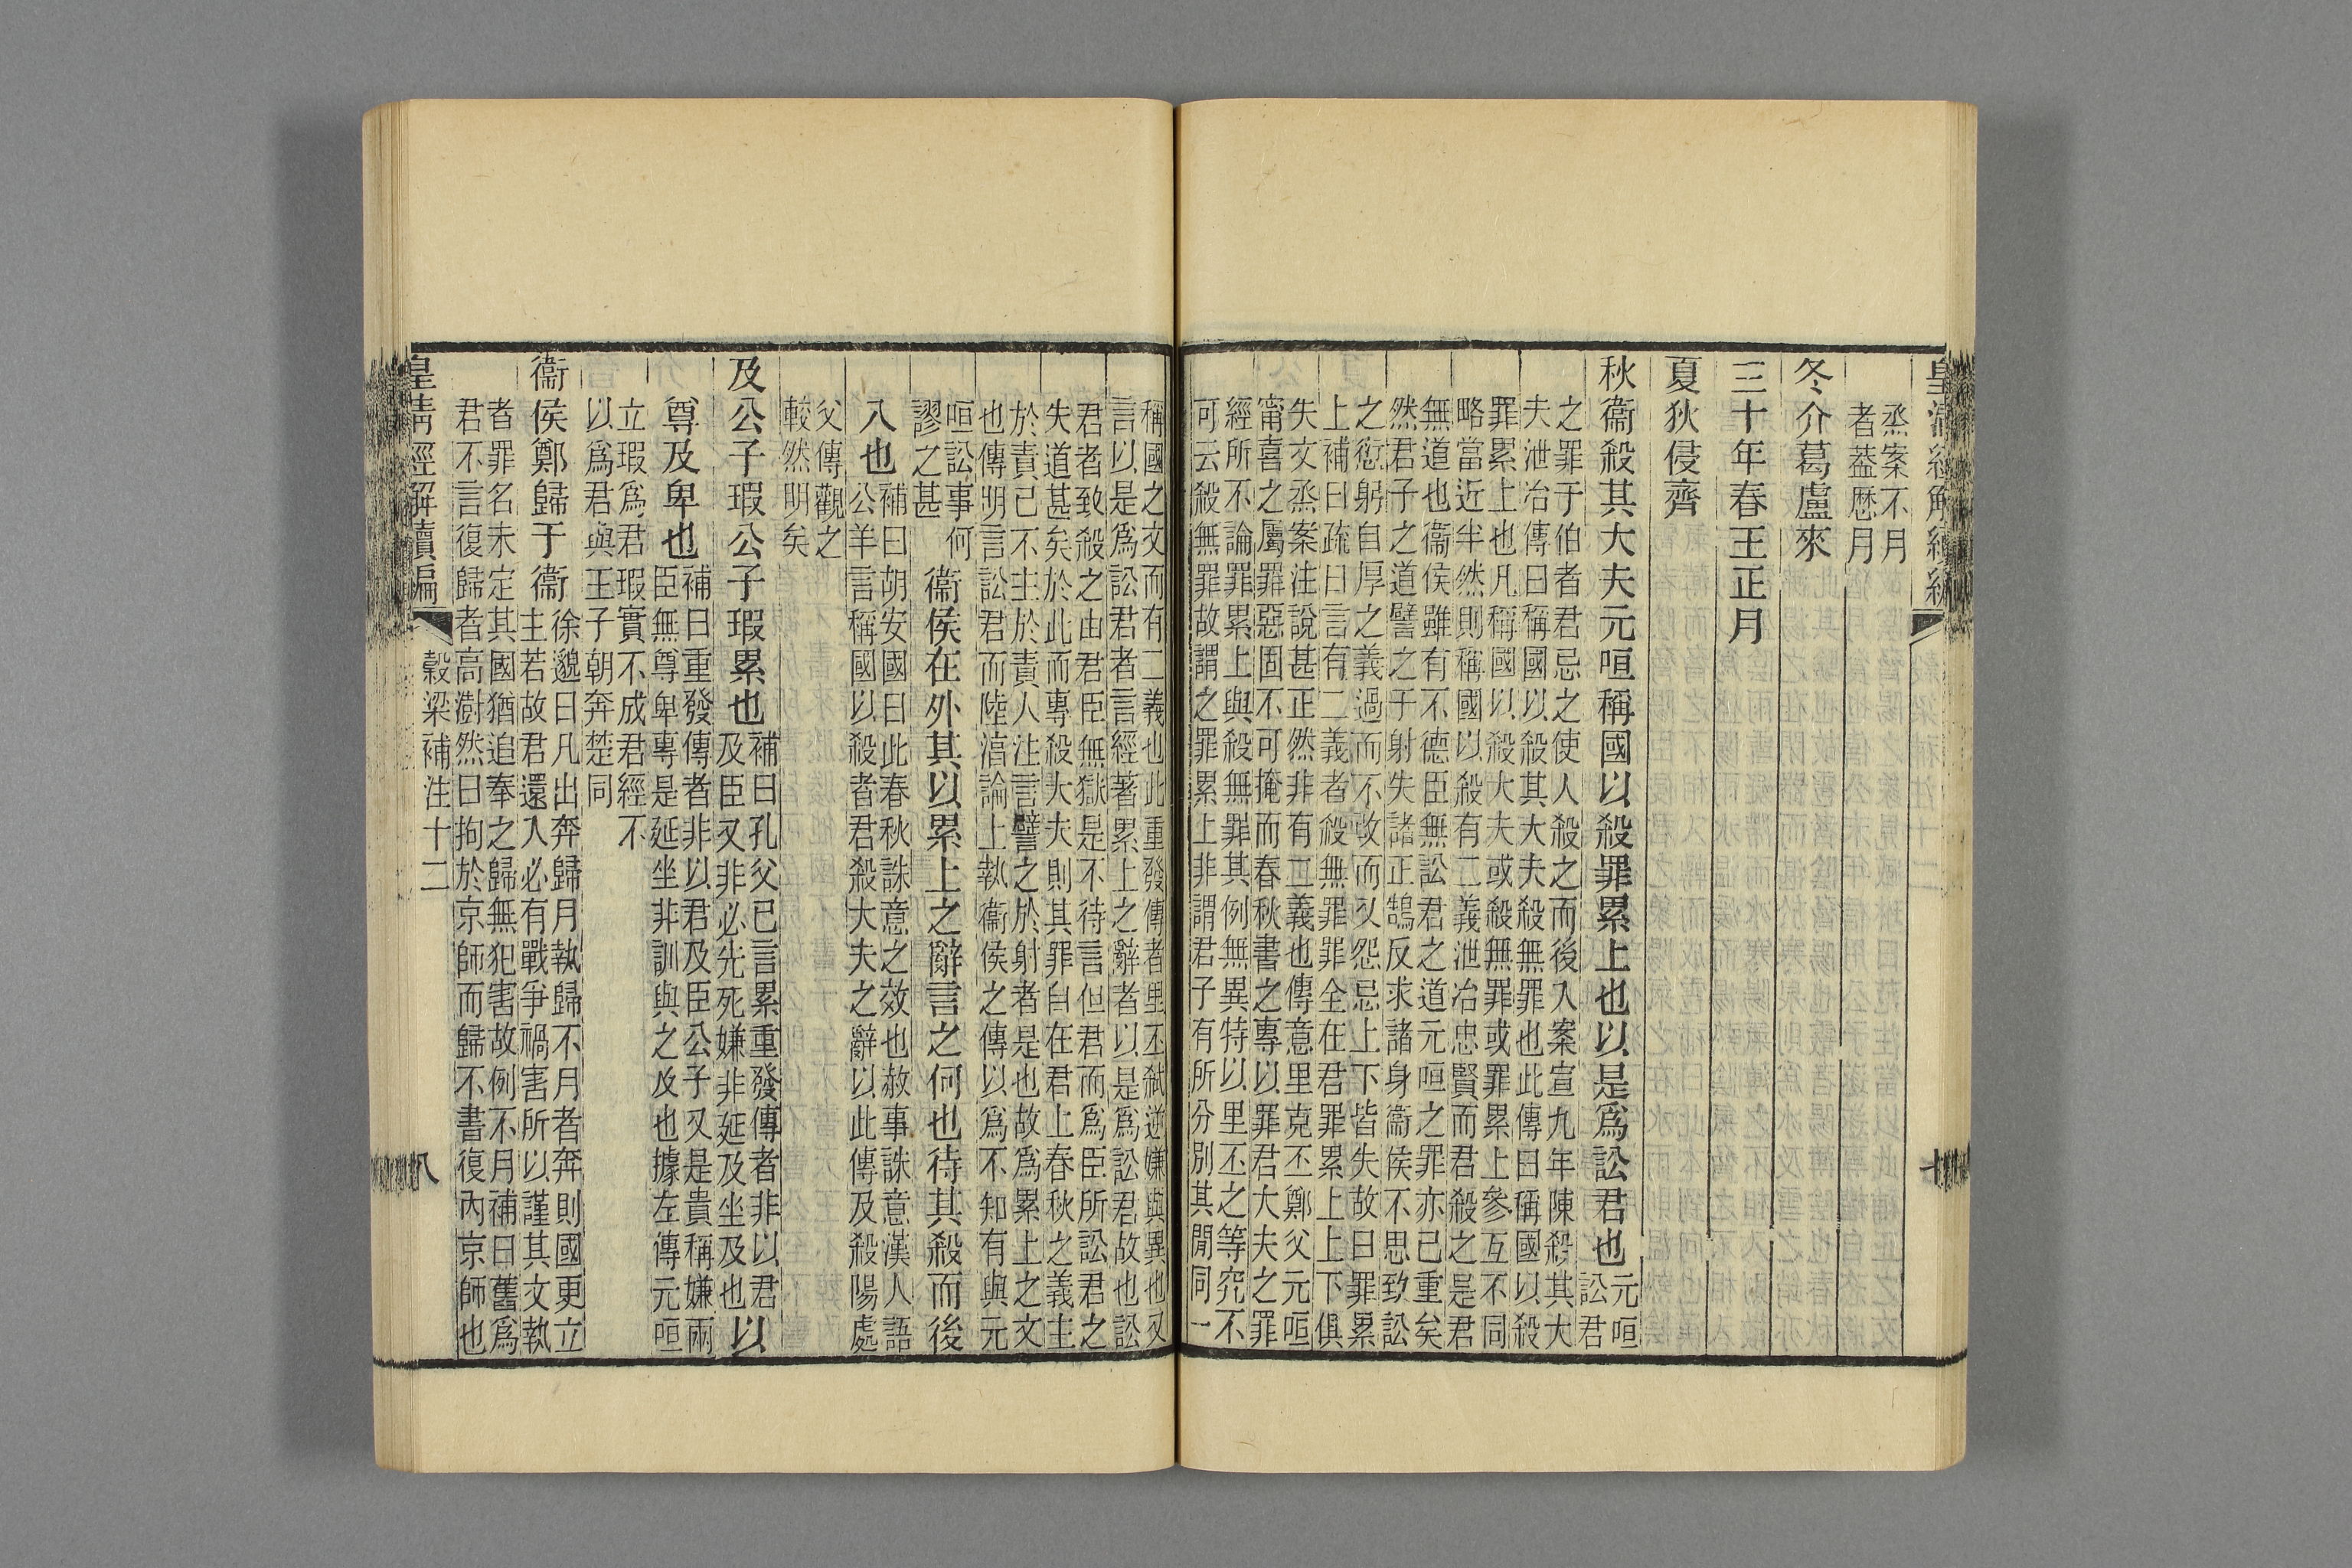 烝案不月
者蓋歷月
冬介葛盧來
三十年春王正月
夏狄侵齊
秋衞殺其大夫元咺稱國以殺罪累上也以是爲訟君也元咺
訟君
之罪于伯者君忌之使人殺之而後入案宣九年陳殺其大
夫泄冶傳曰稱國以殺其大夫殺無罪也此傳曰稱國以殺
罪累上也凡稱國以殺大夫或殺無罪或罪累上參互不同
略當近半然則稱國以殺有二義泄冶忠賢而君殺之是君
無道也衞侯雖有不德臣無訟君之道元咺之罪亦已重矣
然君子之道譬之于射失諸正鵠反求諸身衞侯不思致訟
之愆躬自厚之義過而不改而又怨忌上下皆失故曰罪累
上補曰疏曰言有二義者殺無罪罪全在君罪累上上下俱
失文烝案注說甚正然非有二義也傳意里克丕鄭父元咺
甯喜之屬罪惡固不可掩而春秋書之專以罪君大夫之罪
經所不論罪累上與殺無罪其例無異特以里丕之等究不
可云殺無罪故謂之罪累上非謂君子有所分別其閒同一
稱國之文而有二義也此重發傳者里丕弑逆嫌與異也又
言以是爲訟君者言經著累上之辭者以是爲訟君故也訟
君者致殺之由君臣無獄是不待言但君而爲臣所訟君之
失道甚矣於此而專殺大夫則其罪自在君上春秋之義主
於責己不主於責人注言譬之於射者是也故爲累上之文
也傳明言訟君而陸淳論上執衞侯之傳以爲不知有與元
咺訟事何
謬之甚衞侯在外其以累上之辭言之何也待其殺而後
入也補曰胡安國曰此春秋誅意之效也赦事誅意漢人語
公羊言稱國以殺者君殺大夫之辭以此傳及殺陽處
父傳觀之
較然明矣
及公子瑕公子瑕累也補曰孔父已言累重發傳者非以君
及臣又非必先死嫌非延及坐及也以
尊及卑也補曰重發傳者非以君及臣公子又是貴稱嫌兩
臣無尊卑專是延坐非訓與之及也據左傳元咺
立瑕爲君瑕實不成君經不
以爲君與王子朝奔楚同
衞侯鄭歸于衞徐邈曰凡出奔歸月執歸不月者奔則國更立
主若故君還入必有戰爭禍害所以謹其文執
者罪名未定其國猶追奉之歸無犯害故例不月補曰舊爲
君不言復歸者高澍然曰拘於京師而歸不書復內京師也
皇清經解續編
穀梁補注十二
八